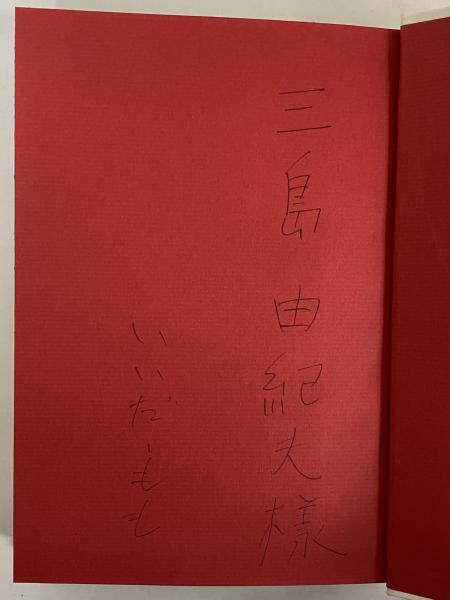 三島由紀夫様
いいだ・もも